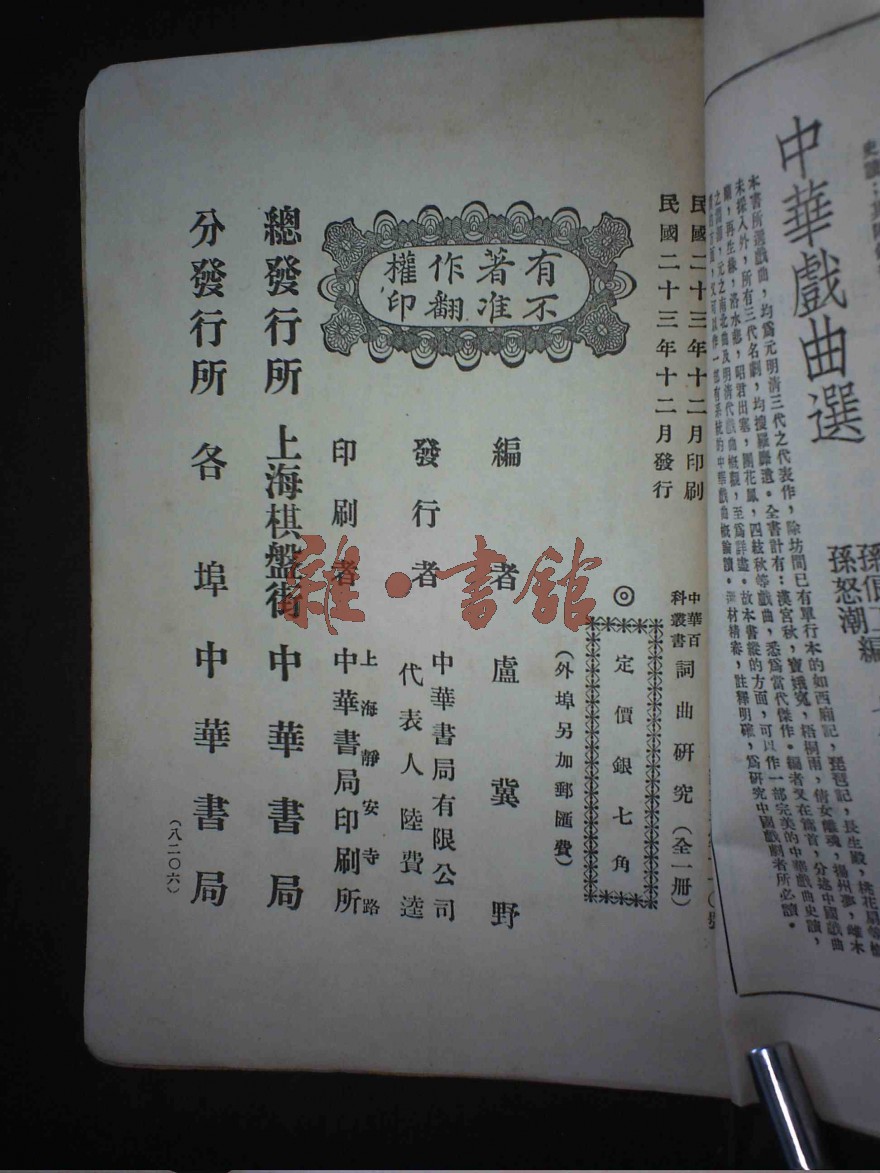 民國二十三年十二月印刷
民國二十三年十二月發行
中華百科叢書 詞曲研究(全一册)
◎定價銀七角
(外埠另加郵匯費)
有著作權
不准翻印
編者 盧冀野
發行者 中華書局有限公司
代表人 陸費逵
印刷者 上海靜安寺路
中華書局印刷所
總發行所 上海棋盤街 中華書局
分發行所 各埠 中華書局
(八二〇六)
雜·書館
中華戲曲選
孫怒潮
本書所選戲曲,均爲元明清三代之代表作,除坊間已有單行本的如西廂記,琵琶記,長生殿,桃花扇等
未採入外,所有三代名劇,均搜羅靡遺。全書計有:漢宮秋,竇娥寃,梧桐雨,倩女離魂,揚州夢,雌木
蘭,再生緣,洛水悲,昭君出塞,團花鳳,四絃秋等戲曲,悉爲當代傑作。編者又在篇首,分述中國戲曲
之淵源,元之南北曲及明清代戲曲概觀,至爲詳盡。故本書縱的方面,可以作一部完美的中華戲曲史讀,
又可以作一部有系統的中華戲曲概論讀。選材精審,註釋明確,爲研究中國戲劇者所必讀。